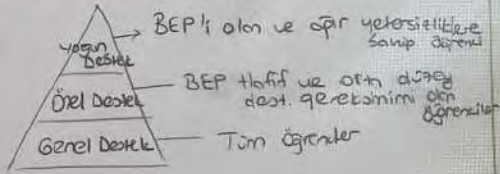 Yoğun Destek → BEP'i olan ve ağır yetersizliklere
sahip öğrenci
Özel Destek — BEP + hafif ve orta düzey
dest. gereksinimi olan
öğrenciler
Genel Destek — Tüm öğrenciler